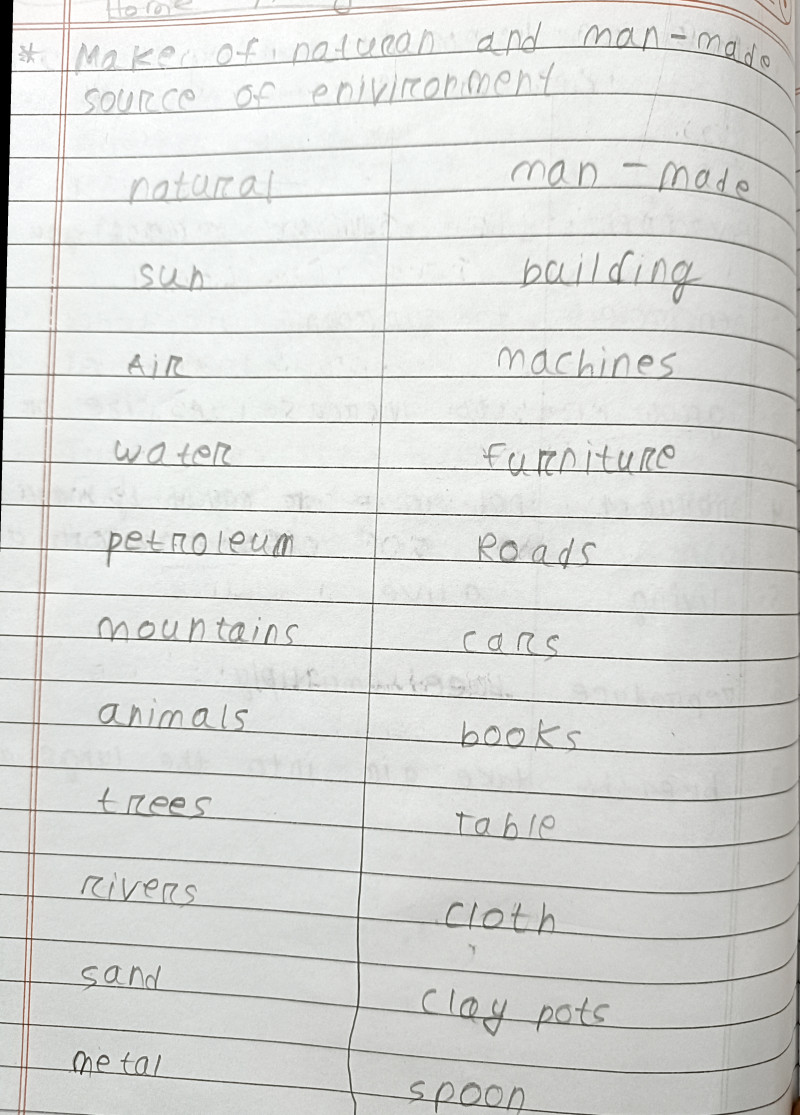 Home
* Make of naturan and man-made
source of enivironment
natural man - made
sun bailding
AiR machines
water furniture
petroleum Roads
mountains cars
animals books
trees Table
rivers cloth
sand clay pots
metal spoon